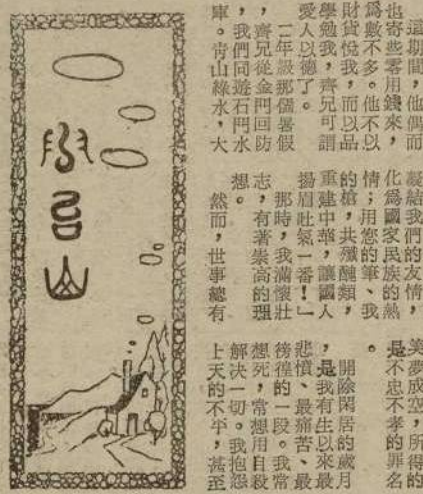 這期間，他偶而
也寄些零用錢來，
爲數不多。他不以
財貨悅我，而以品
學勉我，齊兄可謂
愛人以德了。
二年級那個暑假
，齊兄從金門回防
，我們同遊石門水
庫。青山綠水，大
凝結我們的友情，
化爲國家民族的熱
情；用您的筆、我
的槍，共殲醜類，
重建中華，讓國人
揚眉吐氣一番！」
那時，我滿懷壯
志，有著崇高的理
想。
然而，世事總有
美夢成空，所得的
是不忠不孝的罪名
。
開除閑居的歲月
，是我有生以來最
悲憤、最痛苦、最
徬徨的一段。我常
想死，常想用自殺
解決一切。我抱怨
上天的不平，甚至